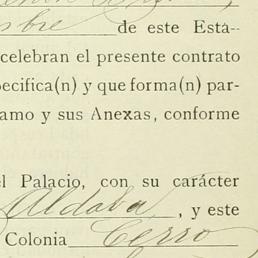 de este Está--
celebran el presente contrato
pecifica(n) y que forma(n) par-
amo y sus Anexas, conforme
el Palacio, con su carácter
Aldaba, y este
Colonia Cerro